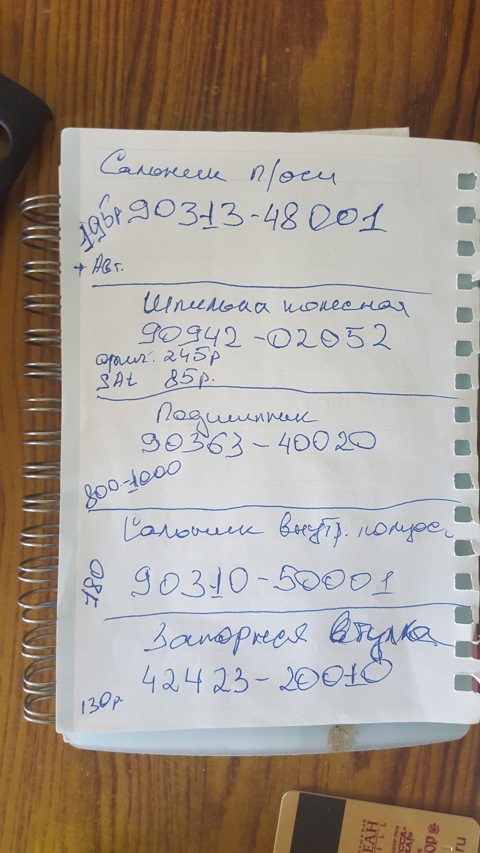 Сальник п/оси
195р 90313-48001
+ Авт.
Шпилька колесная
90942-02052
ориг. 245р
SAt 85р.
Подшипник
90363-40020
800-1000
Сальник внутр. полуос.
780 90310-50001
Запорная втулка
42423-20010
130р.